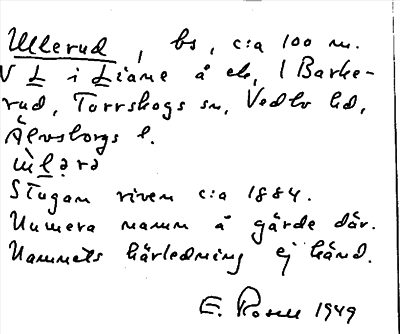 Ullerud, bs, c:a 100 m.
V Ł i Łiane å ek, 1 Barke-
rud, Torrskogs sn, Vedbo hd,
Älvsborgs l.
ùḻərə
Stugan riven c:a 1884.
Numera namn å gärde där.
Namnets härledning ej känd.
E. Rosell 1949